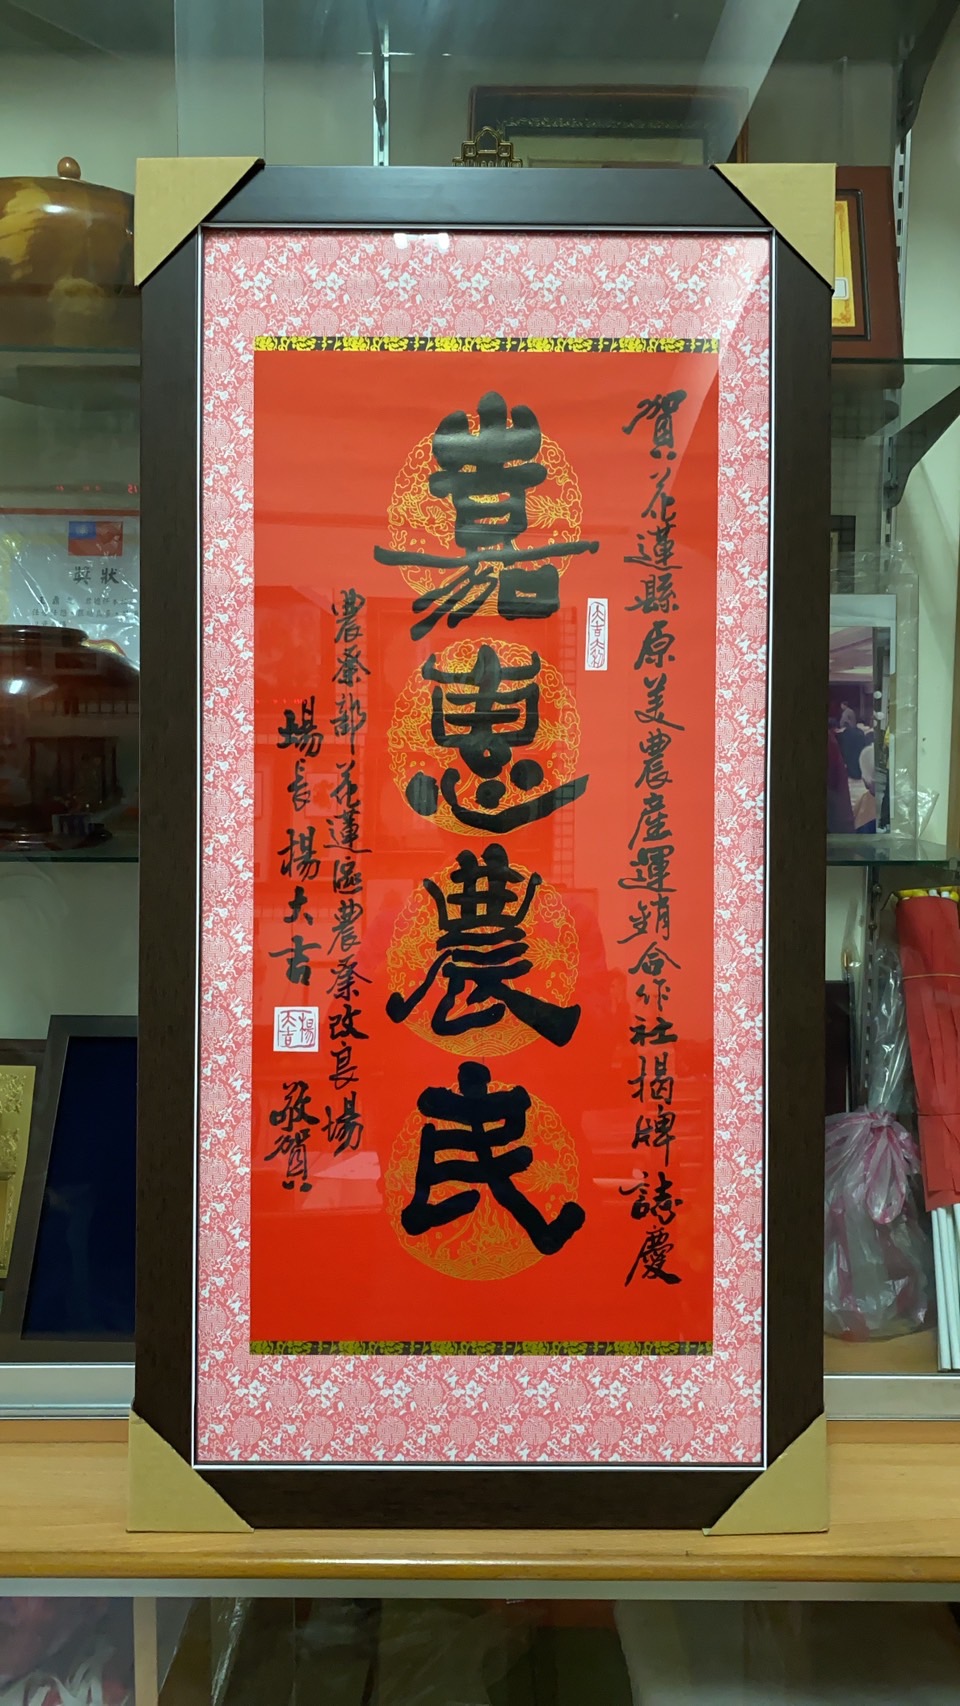 賀 花蓮縣原美農產運銷合作社揭牌 誌慶
嘉惠農民
農業部花蓮區農業改良場
場長 楊大吉 敬賀
楊大吉
獎狀